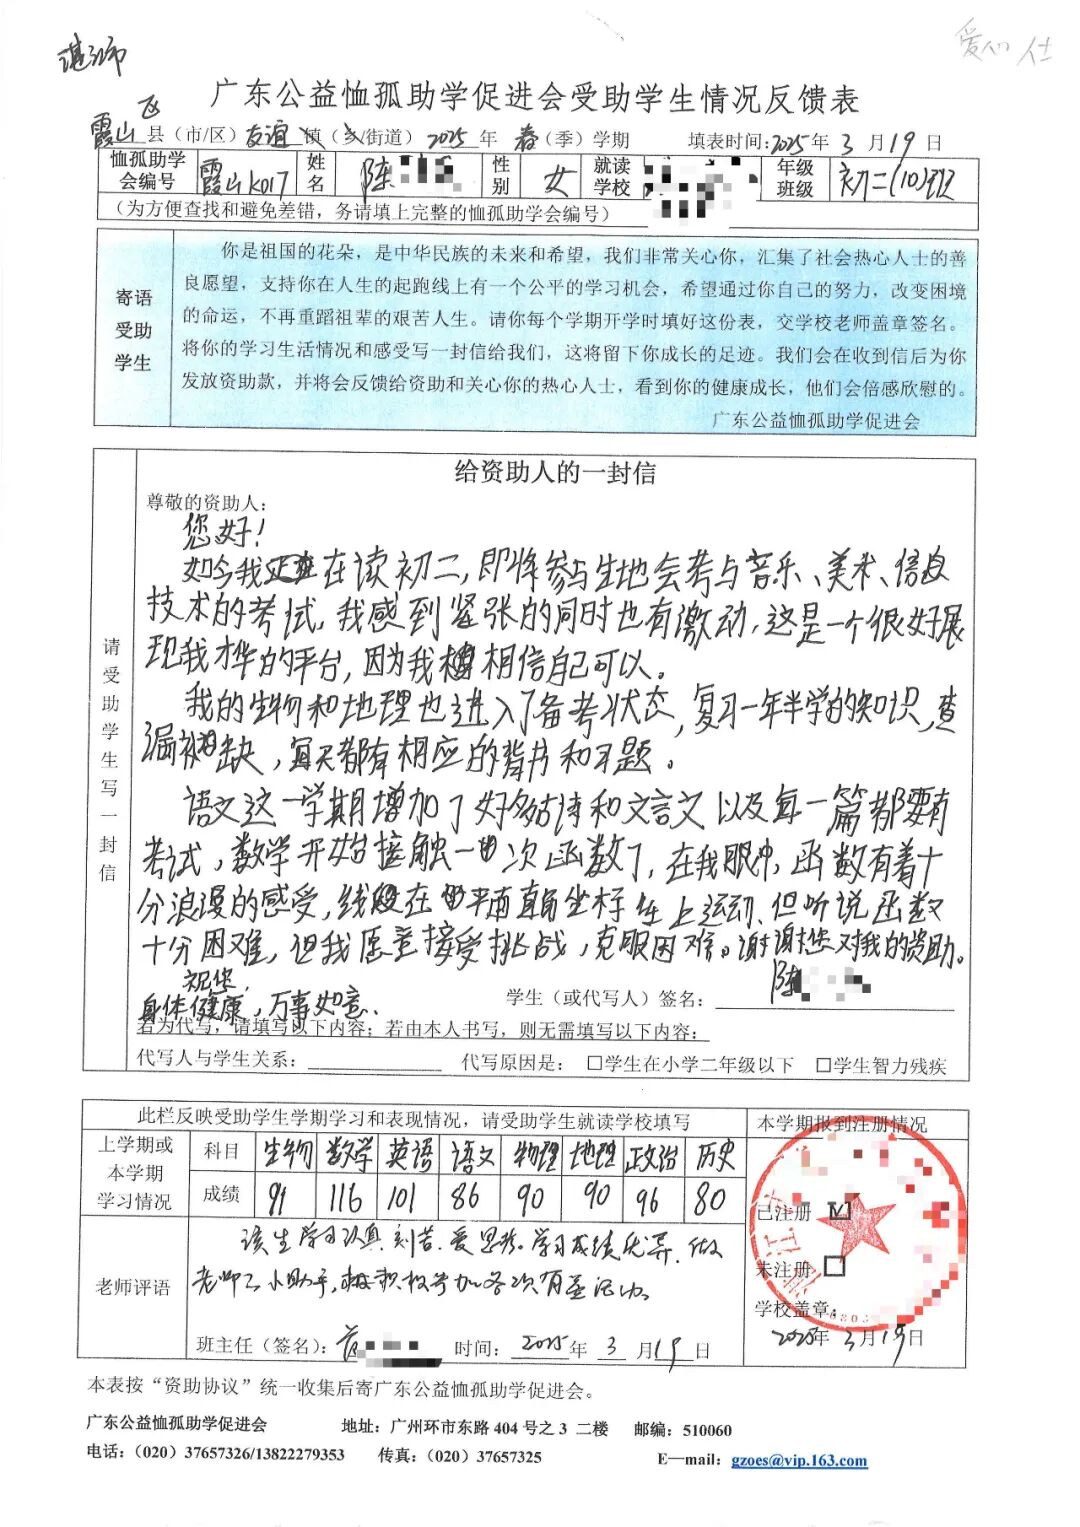 湛江市
爱心人仕
广东公益恤孤助学促进会受助学生情况反馈表
霞山区县（市/区）友谊镇（乡/街道）2025年春（季）学期 填表时间:2025年3月19日
恤孤助学会编号 霞山K017 姓名 陈 性别 女 就读学校 年级班级 初二(10)班
（为方便查找和避免差错，务请填上完整的恤孤助学会编号）
寄语受助学生
你是祖国的花朵，是中华民族的未来和希望，我们非常关心你，汇集了社会热心人士的善
良愿望，支持你在人生的起跑线上有一个公平的学习机会，希望通过你自己的努力，改变困境
的命运，不再重蹈祖辈的艰苦人生。请你每个学期开学时填好这份表，交学校老师盖章签名。
将你的学习生活情况和感受写一封信给我们，这将留下你成长的足迹。我们会在收到信后为你
发放资助款，并将会反馈给资助和关心你的热心人士，看到你的健康成长，他们会倍感欣慰的。
广东公益恤孤助学促进会
请受助学生写一封信
给资助人的一封信
尊敬的资助人：
您好！
如今我正在读初二，即将参与生地会考与音乐、美术、信息
技术的考试，我感到紧张的同时也有激动，这是一个很好展
现我才华的平台，因为我相信自己可以。
我的生物和地理也进入了备考状态，复习一年半学的知识，查
漏补缺，每天都有相应的背书和习题。
语文这一学期增加了好多古诗和文言文以及每一篇都要有
考试，数学开始接触一次函数了，在我眼中，函数有着十
分浪漫的感受，线段在平面直角坐标车上运动，但听说函数
十分困难，但我愿意接受挑战，克服困难。谢谢您对我的资助。
祝您，
身体健康，万事如意．
学生（或代写人）签名： 陈
若为代写，请填写以下内容；若由本人书写，则无需填写以下内容：
代写人与学生关系： 代写原因是： □学生在小学二年级以下 □学生智力残疾
此栏反映受助学生学期学习和表现情况，请受助学生就读学校填写
本学期报到注册情况
上学期或本学期学习情况
科目 生物 数学 英语 语文 物理 地理 政治 历史
成绩 91 116 101 86 90 90 96 80
已注册 ☑
未注册 □
学校盖章：
2025年3月19日
老师评语
该生学习认真刻苦，爱思考。学习成绩优异，做
老师的小助手，积极参加各项有益活动。
班主任（签名）： 时间：2025年3月19日
本表按“资助协议”统一收集后寄广东公益恤孤助学促进会。
广东公益恤孤助学促进会 地址：广州环市东路404号之3 二楼 邮编：510060
电话：（020）37657326/13822279353 传真：（020）37657325 E—mail：gzoes@vip.163.com